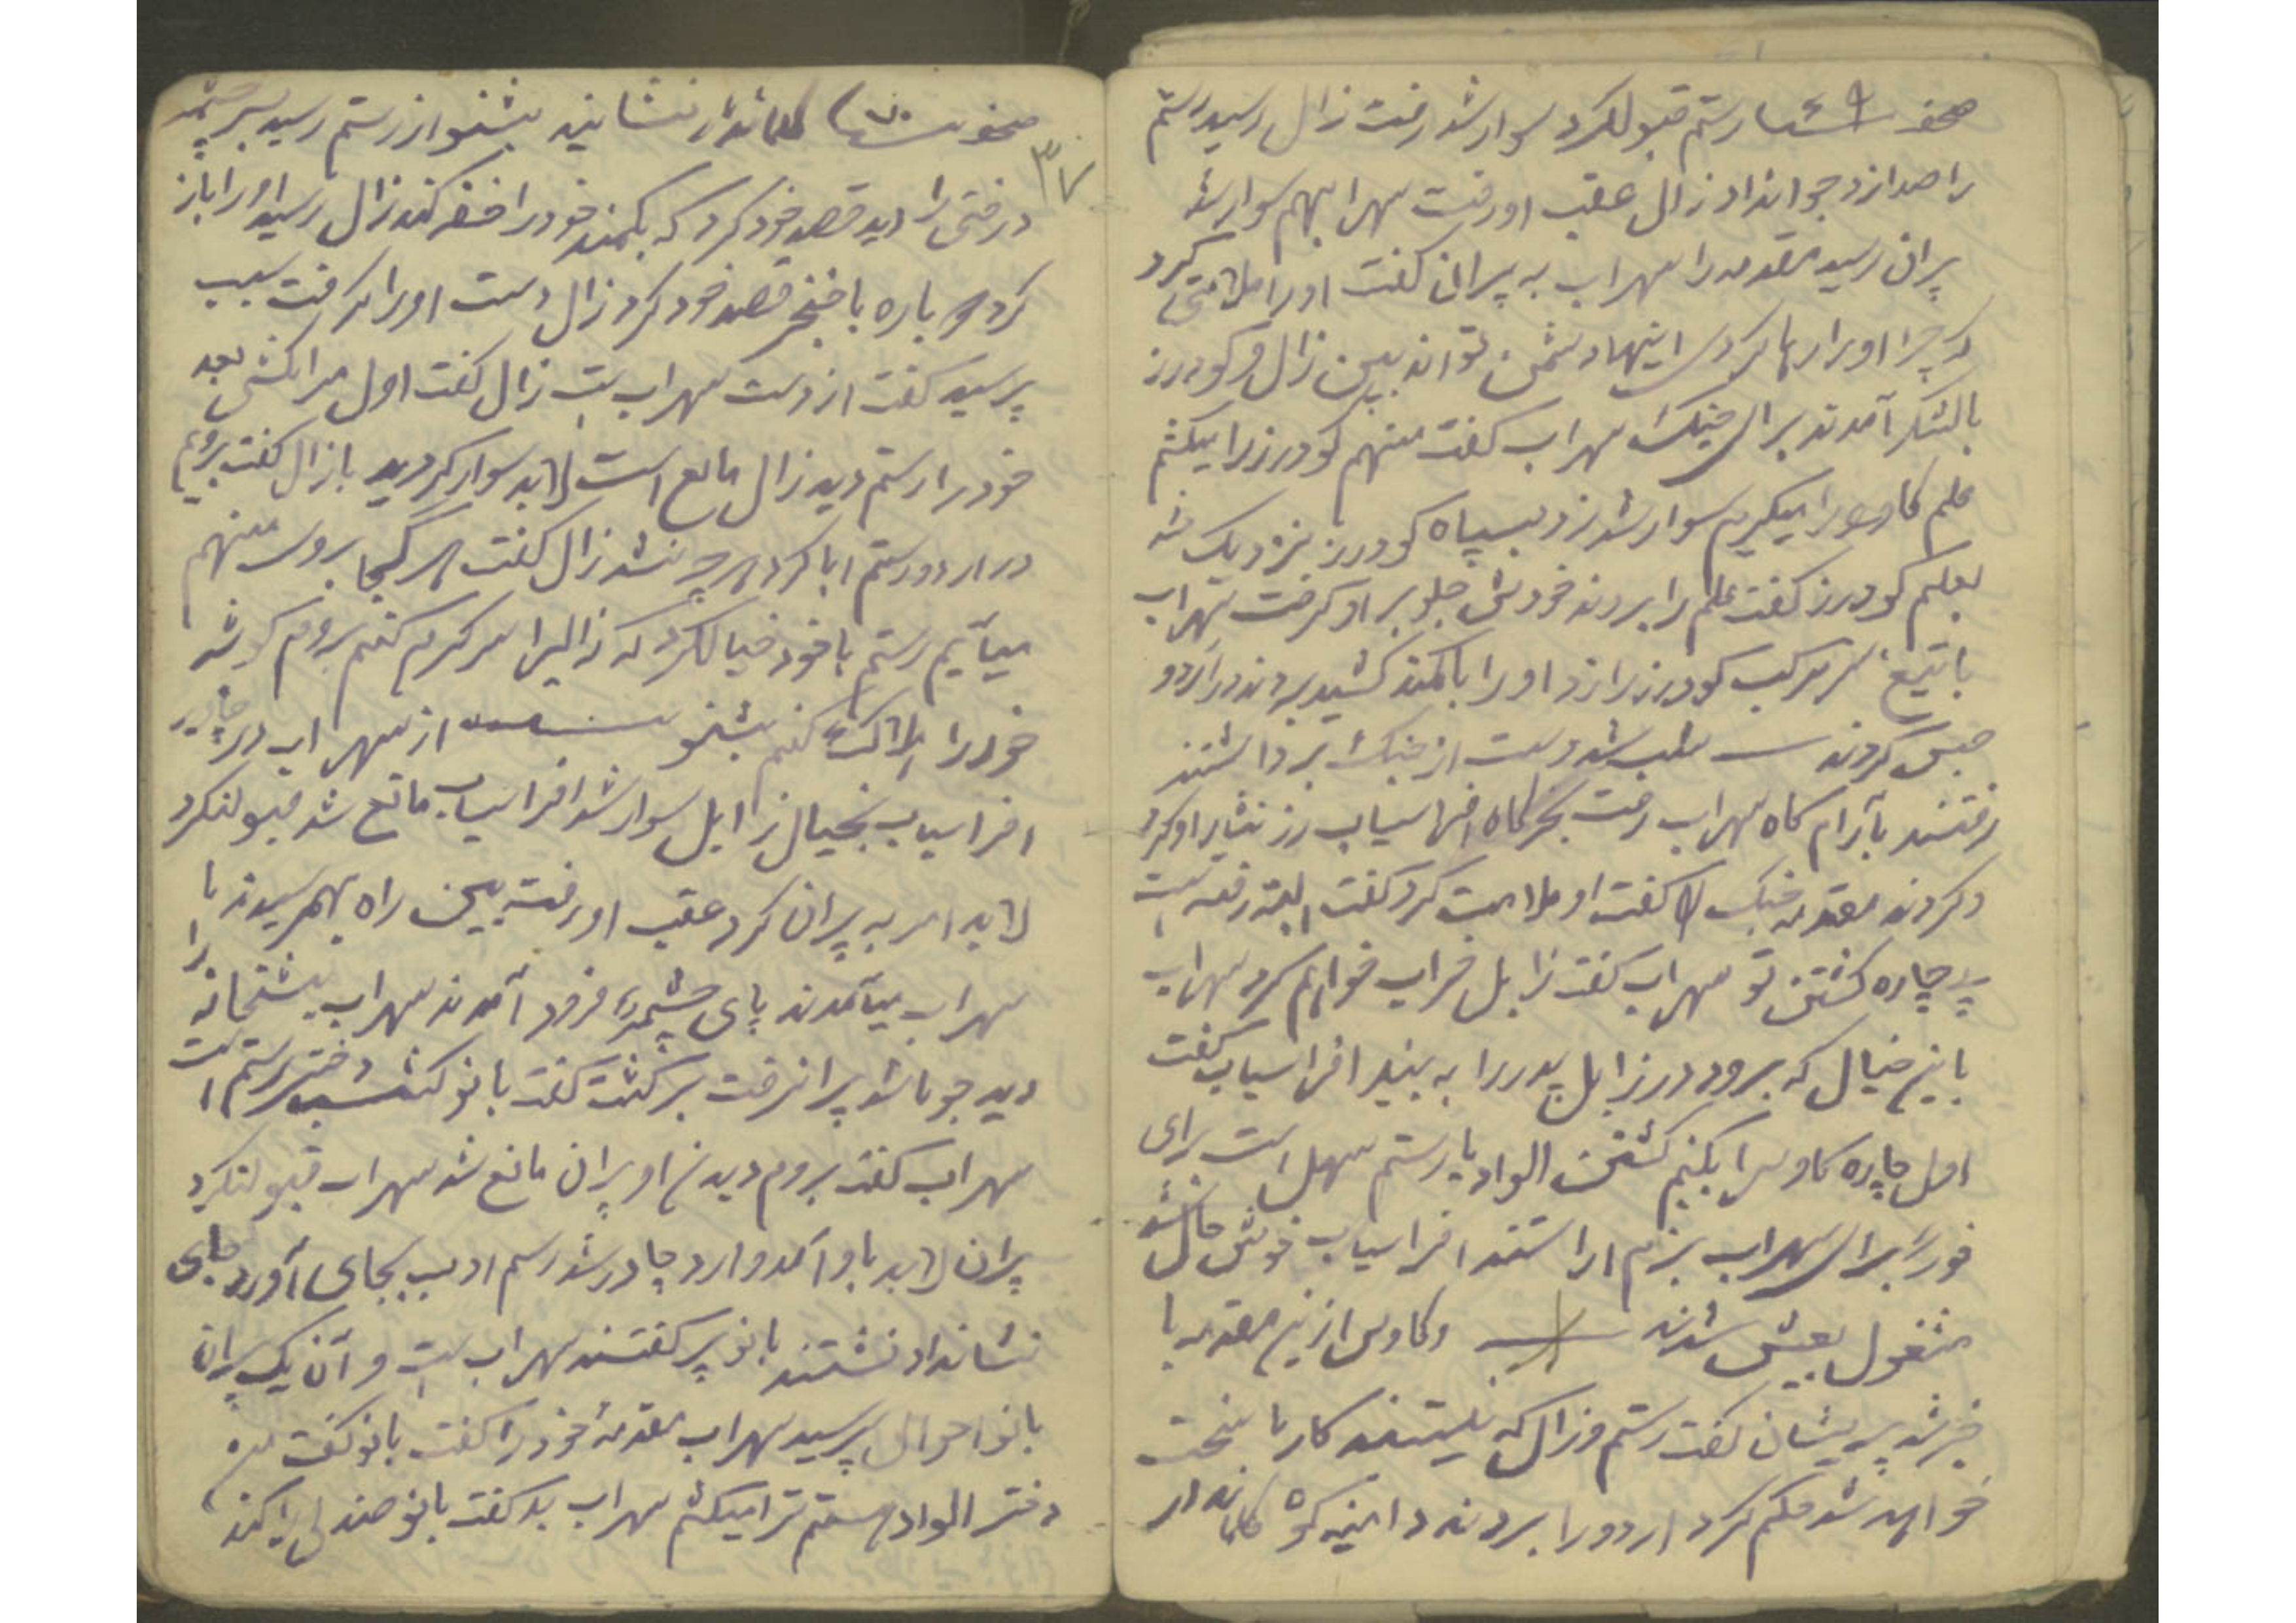 صحفه ۶۹ رستم قبولکرد سوار شد رفت زال رسید رستم
را صدا زد جواب نداد زال عقب او رفت سهراب هم سوار شد
پران رسید مقدمه را سهراب به پران گفت او را ملامتی کرد
که چرا او را رها کردی اینها دشمن تواند ببین زال و گودرز
با لشکر آمدند برای جنگ سهراب گفت منهم گودرز را میکشم
علم کاوه را میگیرم سوار شد زد بسپاه گودرز نزدیک شد
بعلم گودرز گفت علم را بردند خودش جلو بر او گرفت سهراب
با تیغ سر مرکب گودرز را زد او را با کمند کشید بردند در اردو
حبس کردند شب شد دست از جنگ برداشتند
رفتند بآرام گاه سهراب رفت بخرگاه افراسیاب زر نثار او کرد
و کردند مقدمه جنگ گفت او ملامت کرد گفت البته رفته است
پی چاره کشتن تو سهراب گفت زابل خراب خواهم کرد سهراب
باین خیال که برود در زابل پدر را به بیند افراسیاب گفت
اول چاره کاوس را بکنیم کشتن اولاد یا رستم سهل است برای
فوراً برای سهراب بزم اراستند افراسیاب خوش حال شد
مشغول بعیش شدند و کاوس ازین مقدمه با
خبر شد پریشان گفت رستم و زال که نیستند کار ما سخت
خواهد شد حکم کرد اردو را بردند دامنه کوه کماندار
۳۷
صحفه ۷۰ کماندار نشانید بشنو از رستم رسید بسر چشمه
درختی را دید قصد خود کرد که بکمند خود را خفه کند زال رسید او را باز
کرد باره با خنجر قصد خود کرد زال دست او را گرفت سبب
پرسید گفت از دست سهراب است زال گفت اول مرا بکش بعد
خود را رستم دید زال مانع است لابد سوار گردید با زال گفت برویم
در اردو رستم ابا کرد هر چه شد زال گفت هر کجا بروی منهم
میآیم رستم با خود خیالکرد که زال را سرگرم کنم بروم گوشه
خود را هلاک کنم بشنو از سهراب در چادر
افراسیاب بخیال زابل سوار شد افراسیاب مانع شد قبول نکرد
لابد امر به پران کرد عقب او رفت بین راه بهم رسیدند با
سهراب میآمدند پای چشمه فرود آمدند سهراب پشخانه را
دید جویا شد پران رفت برگشت گفت بانو گشسب دختر رستم است
سهراب گفت بروم دیدن او پران مانع شد سهراب قبول نکرد
پران لابد با او آمد وارد چادر شد رسم ادب بجای آورد جای
نشان داد نشستند بانو پر گفتند سهراب است و آن یک پران
بانو احوال پرسید سهراب مقدمه خود را گفت بانو گفت من
دختر اولاد رستم ترا میکشم سهراب بد گفت بانو صندلی را کند